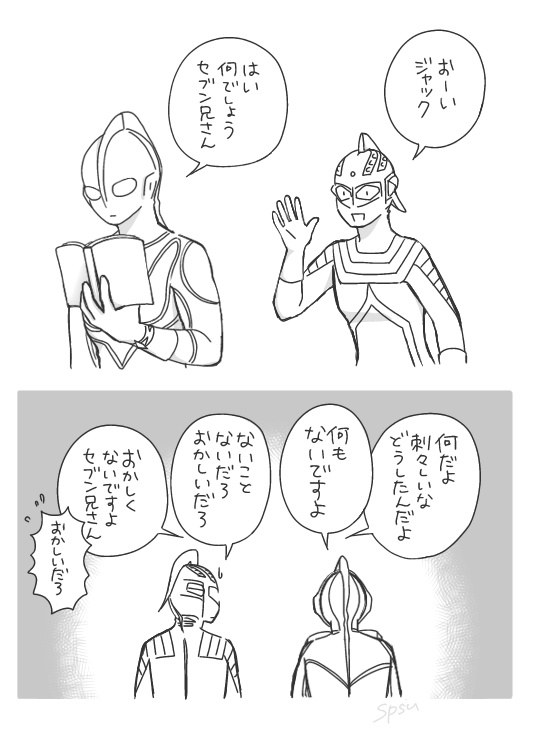 おーい
ジャック
はい
何でしょう
セブン兄さん
何だよ
刺々しいな
どうしたんだよ
何も
ないですよ
ないこと
ないだろ
おかしいだろ
おかしく
ないですよ
セブン兄さん
おかしいだろ
spsu